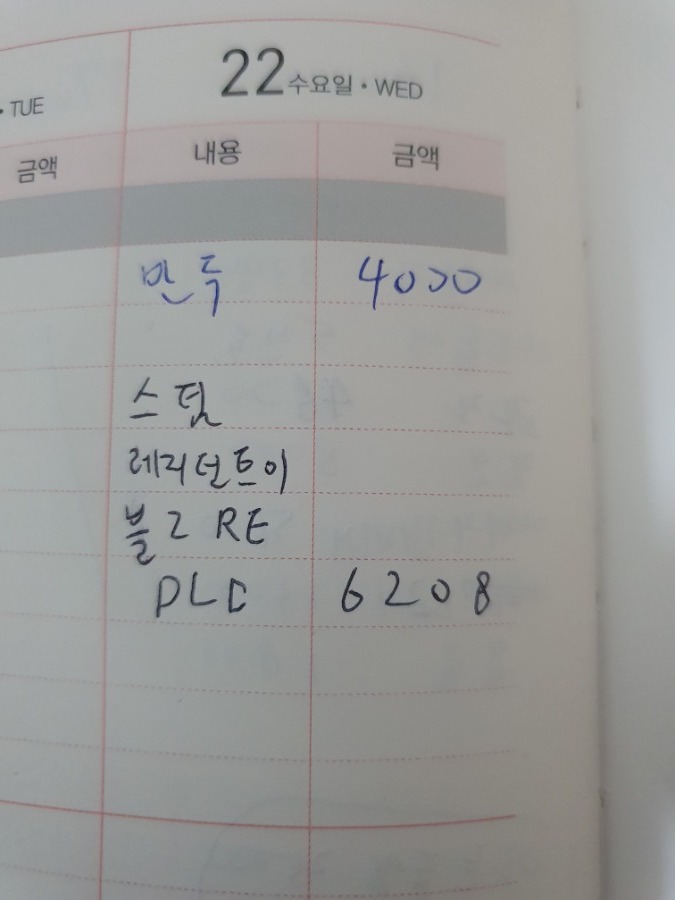 22 수요일 · WED
· TUE
금액 내용 금액
만두 4000
스팀
레지던트이
블2 RE
DLC 6208